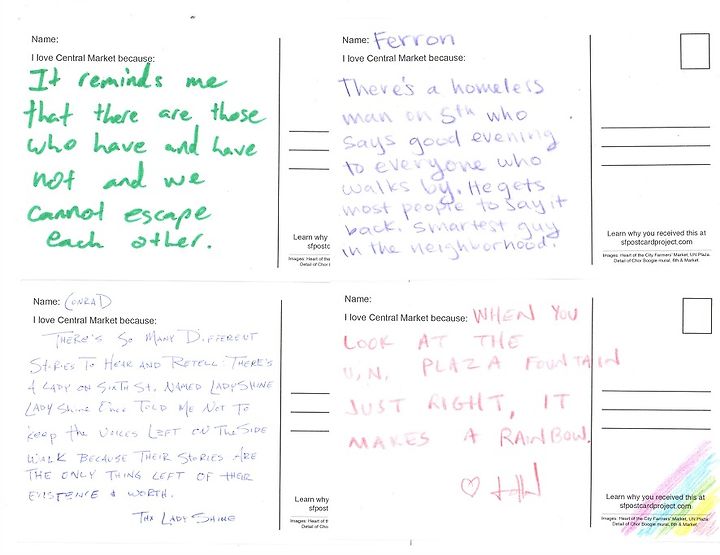 Name:
I love Central Market because:
It reminds me
that there are those
who have and have
not and we
cannot escape
each other.
Learn why
sfpostc
Images: Heart of the
Detail of Chor
Name: Ferron
I love Central Market because:
There's a homeless
man on 5th who
says good evening
to everyone who
walks by. He gets
most people to say it
back. Smartest guy
in the neighborhood.
Learn why you received this at
sfpostcardproject.com
Images: Heart of the City Farmers' Market, UN Plaza
Detail of Chor Boogie mural, 6th & Market.
Name: Conrad
I love Central Market because:
There's So Many Different
Stories To Hear and Retell: There's
A Lady on Sixth St. Named LadyShine
Lady Shine Once Told Me Not To
keep the voices Left on the Side
Walk Because Their Stories Are
The Only Thing Left of their
Existence & Worth.
Thx Lady Shine
Learn why
sfpostc
Images: Heart of th
Detail of Chor
Name:
I love Central Market because: WHEN YOU
LOOK AT THE
U.N. PLAZA FOUNTAIN
JUST RIGHT, IT
MAKES A RAINBOW.
Learn why you received this at
sfpostcardproject.com
Images: Heart of the City Farmers' Market, UN Plaza
Detail of Chor Boogie mural, 6th & Market.